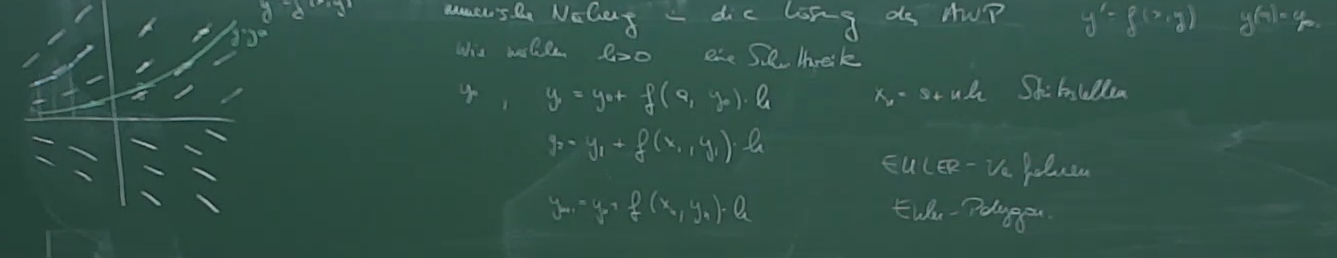 y' = f(x,y)
y=y(x)
numerische Näherung – die Lösung des AWP y' = f(x,y) y(a)=y₀
Wir wählen h>0 eine Schrittweite
y₀ , y₁ = y₀ + f(a, y₀)·h xₙ = a+n·h Stützstellen
y₂ = y₁ + f(x₁, y₁)·h
EULER-Verfahren
yₙ₊₁ = yₙ + f(xₙ, yₙ)·h Euler-Polygon.